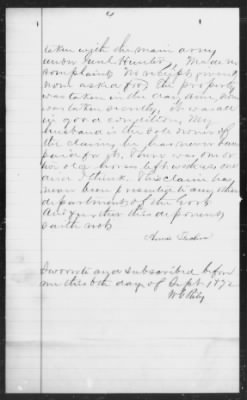 4
taken with the main army
under Genl Hunter, Made no
complaint. No receipt given,
none asked for, The property
was taken in the day time,
was taken openly, it was all
in good condition, My
husband is the sole owner of
the claim, he has never been
paid for it. There was one or
two old horses left us
I think. This claim has
never been presented to any other
department of the Govt
And further this deponent
saith not
Anna
Sworn to and subscribed before
me this 6th day of Sept. 1872